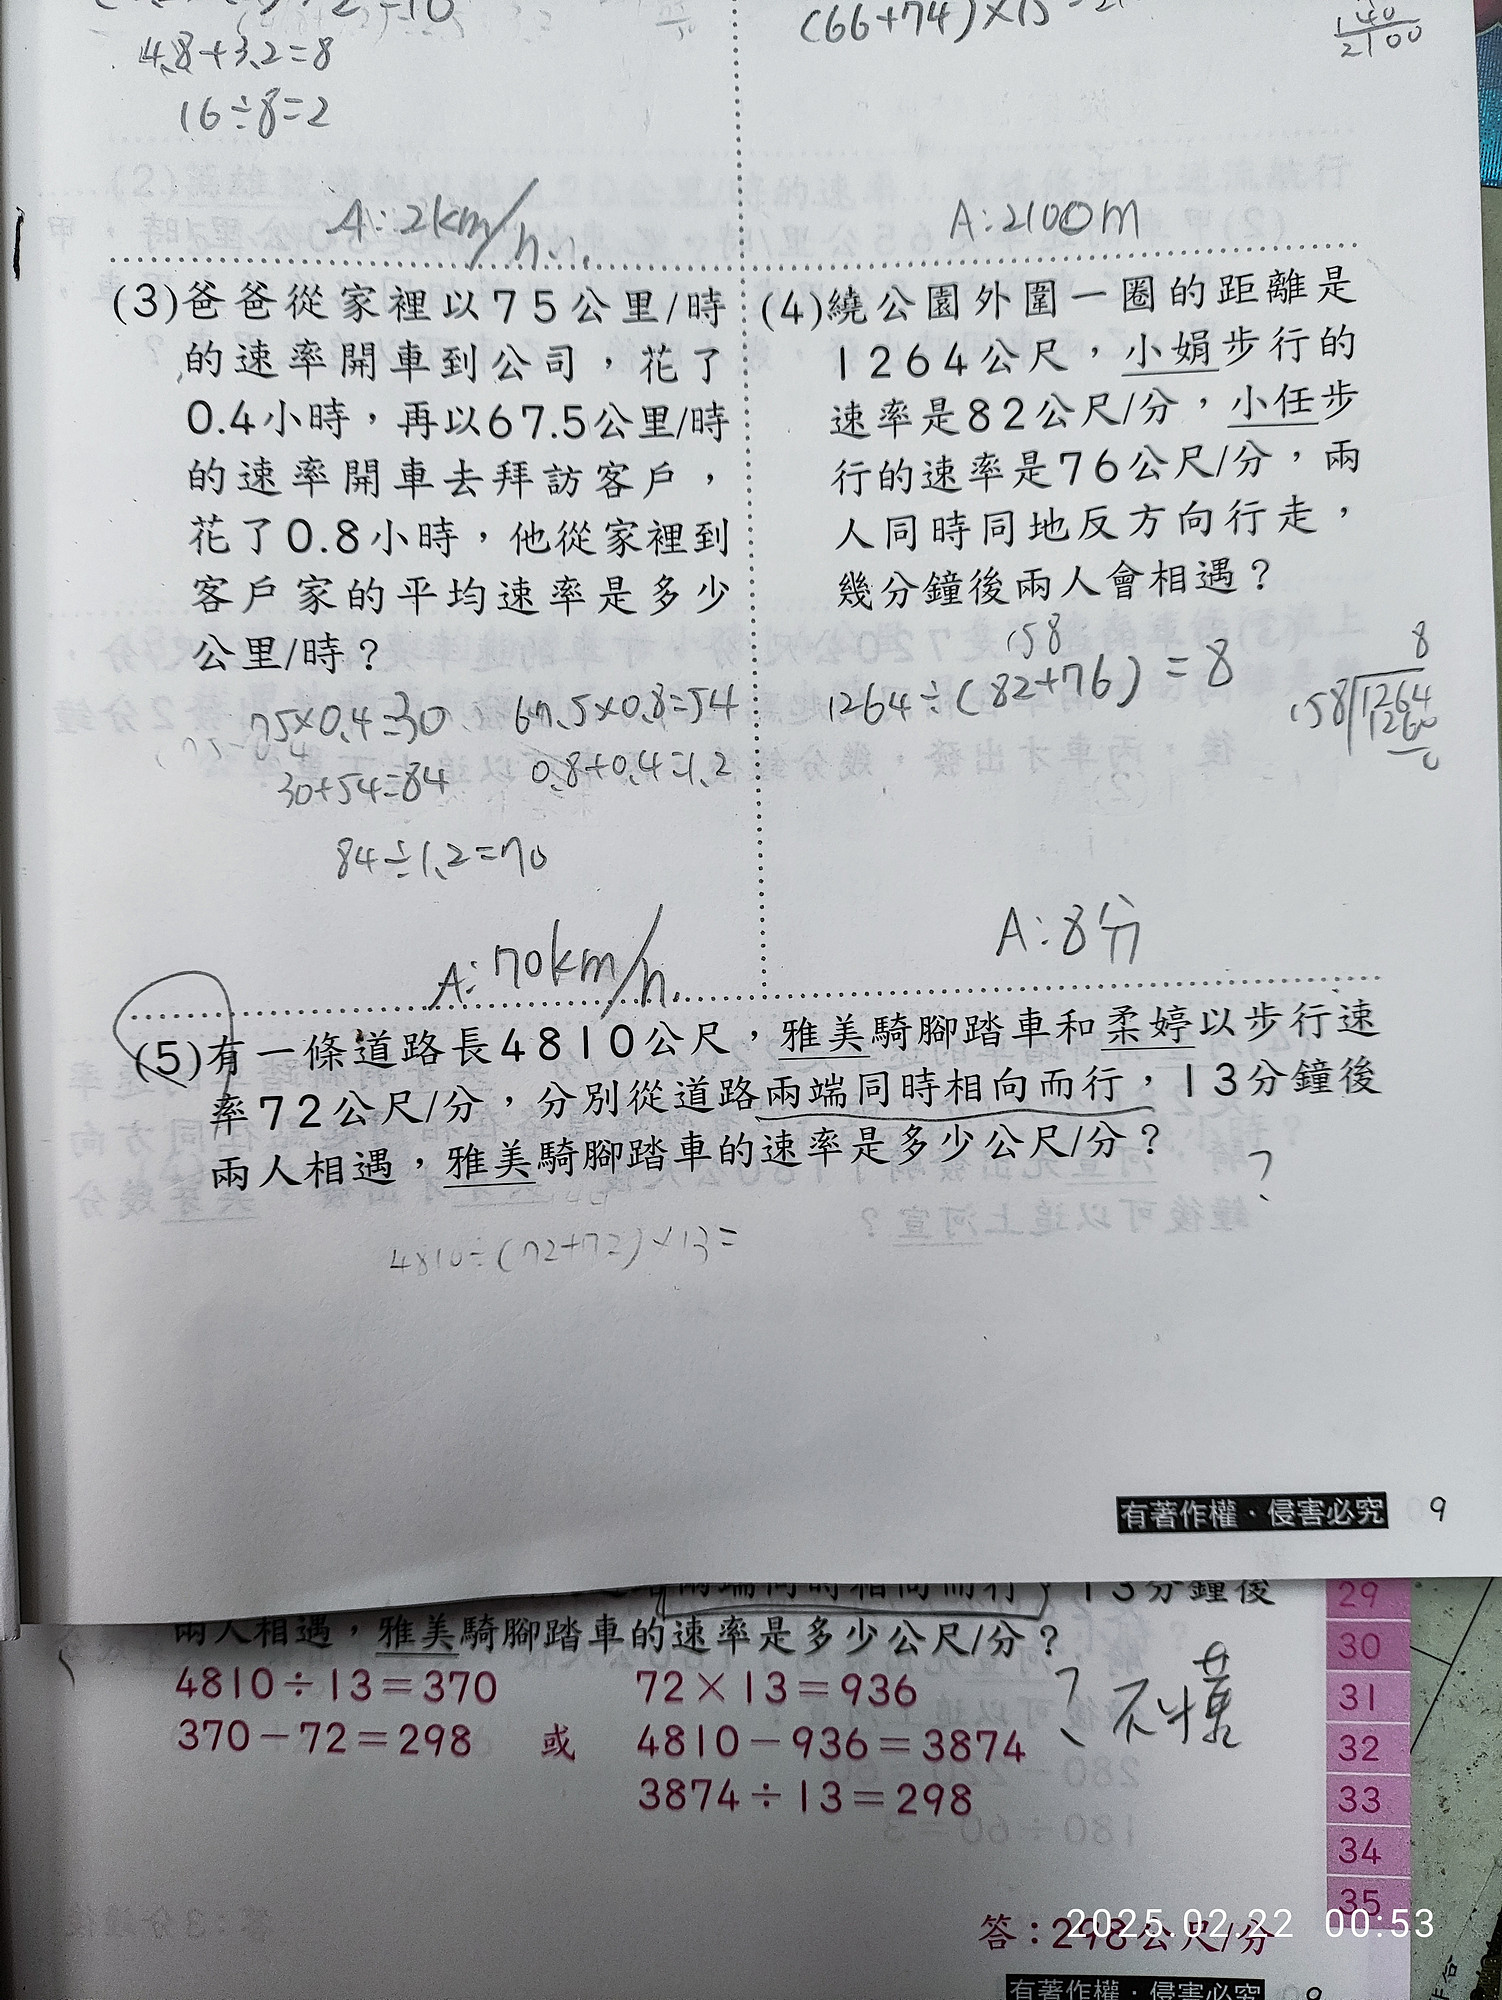 4.8+3.2=8
16÷8=2
A:2km/h
(66+74)×15
2100
A:2100m
(3)爸爸從家裡以75公里/時
的速率開車到公司，花了
0.4小時，再以67.5公里/時
的速率開車去拜訪客戶，
花了0.8小時，他從家裡到
客戶家的平均速率是多少
公里/時？
75×0.4=30 67.5×0.8=54
30+54=84 0.8+0.4=1.2
84÷1.2=70
A:70km/h
(4)繞公園外圍一圈的距離是
1264公尺，小娟步行的
速率是82公尺/分，小任步
行的速率是76公尺/分，兩
人同時同地反方向行走，
幾分鐘後兩人會相遇？
158
1264÷(82+76)=8
8
158 1264
0
A:8分
(5)有一條道路長4810公尺，雅美騎腳踏車和柔婷以步行速
率72公尺/分，分別從道路兩端同時相向而行，13分鐘後
兩人相遇，雅美騎腳踏車的速率是多少公尺/分？
?
4810÷(72+72)×13=
有著作權·侵害必究 9
兩端同時相向而行，13分鐘後
兩人相遇，雅美騎腳踏車的速率是多少公尺/分？
4810÷13=370 72×13=936
370-72=298 或 4810-936=3874
3874÷13=298
? 不懂
29
30
31
32
33
34
35
答：298公尺/分
2025.02.22 00:53
有著作權·侵害必究 9